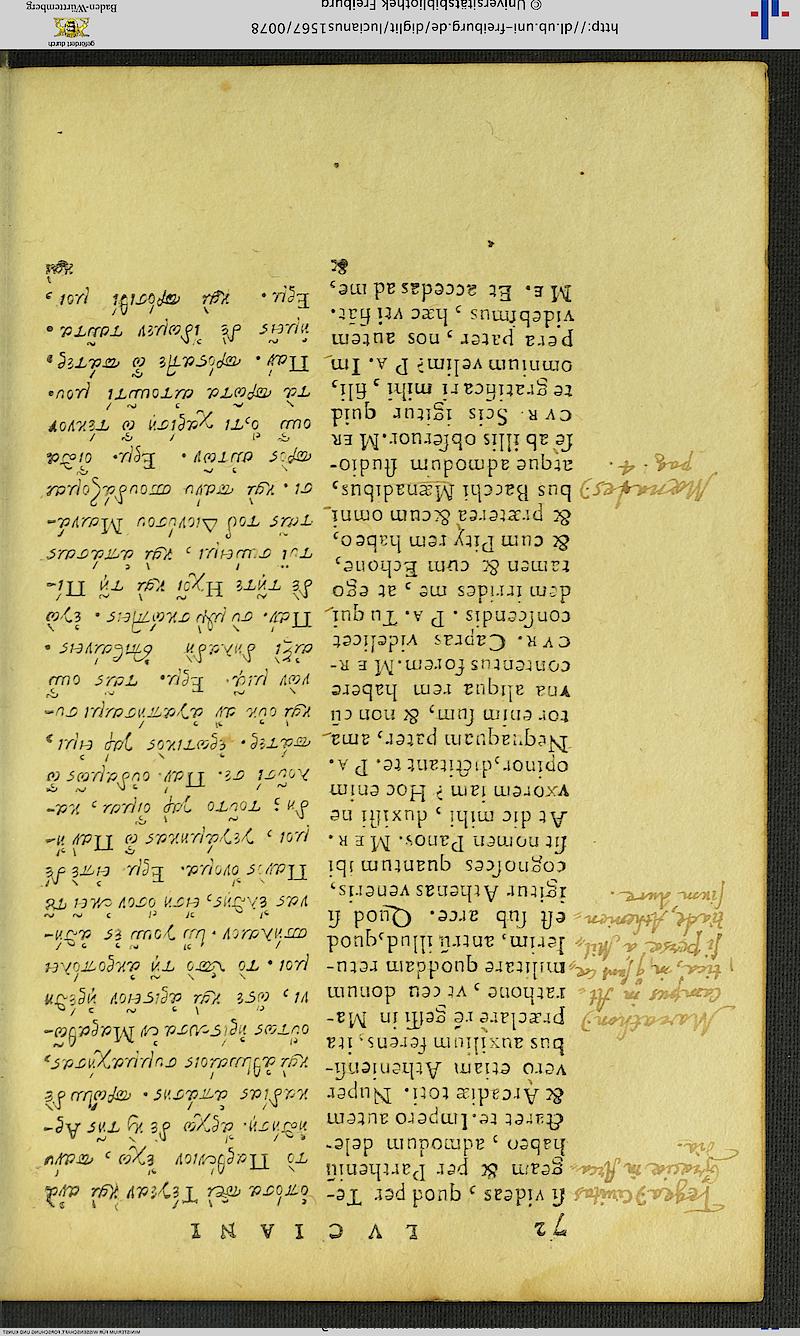 72 LVCIANI
si videas , quod per Te-
geam & per Parthenium
habeo , admodum dele-
ctaret te. Impero autem
& Arcadiæ toti. Nuper
vero etiam Atheniensi-
bus auxilium ferens, ita
præclare rē gessi in Ma-
rathone , vt ceu donum
militare quoddam retu-
lerim, antrū illud, quod
est sub arce. Quod si
igitur Athenas veneris,
cognosces quantum ibi
sit nomen Panos. M E R.
At dic mihi , duxisti ne
vxorem iam ? Hoc enim
opinor, dictitant te. P A.
Nequaquam pater, ama-
tor enim sum, & non cū
vna aliqua rem habere
contentus forem. M E R-
C V R. Capras videlicet
conscendis. P A. Tu qui-
dem irrides me , at ego
tamen & cum Echone,
& cum Pity rem habeo,
& præterea &cum omni-
bus Bacchi Mænadibus,
atque admodum studio-
se ab illis obseruor. M E R
C V R. Scis igitur quid
te gratificari mihi , fili,
omnium velim? P A. Im-
pera pater , nos autem
videbimus , hæc vti fiāt.
M E. Et accedas ad me,
&
ὁπόσα περὶ Τεγέαν καὶ ἀνὰ
τὸ Παρθένιον ἔχω , πάνυ
ἡσθήσῃ. ἄρχω δὲ κὴ τῆς Ἀρ-
καδίας ἁπάσης. πρώην δὲ
καὶ ἀθηναίοις συμμαχήσας,
οὕτως ἠρίστευσα ἐν Μαραθῶ-
νι , ὥστε καὶ ἀριστεῖον ᾑρέθη
μοι . τὸ ὑπὸ τῇ ἀκροπόλει
σπήλαιον . ἢν γοῦν ἐς ἀθή-
νας ἔλθῃς, εἴσῃ ὅσον ἐκεῖ τοῦ
Πανὸς ὄνομα. Ἑρμ. εἰπὲ δέ
μοι , γεγάμηκας ὦ Πὰν ἤ-
δη ; τοῦτο γὰρ οἶμαι , κα-
λοῦσί σε. Πὰν. οὐδαμῶς ὦ
πάτερ. ἐρωτικὸς γάρ εἰμι ,
καὶ οὐκ ἂν ἀγαπήσαιμι συ-
νὼν μιᾷ. Ἑρμ. ταῖς οὖν
αἰξὶ δηλαδὴ ἐπιβαίνεις .
Πὰν. σὺ μὲν σκώπτεις . ἐγὼ
δὲ τῇ τε Ἠχοῖ καὶ τῇ Πί-
τυϊ σύνειμι , καὶ ἁπάσαις
ταῖς τοῦ Διονύσου Μαινά-
σι . καὶ πάνυ σπουδάζομαι
πρὸς αὐτῶν . Ἑρμ. οἶσθα
οὖν ὅ,τι χαρίσῃ ὦ τέκνον
τὰ πρῶτα αἰτοῦντί μοι.
Πὰν . πρόσταττε ὦ πάτερ.
ἡμεῖς δὲ ἴδωμεν ταῦτα .
Ἑρμ . καὶ πρόσιθί μοι ,
καὶ
Tegea) ciuitas
Græciæ in Arca
dia.
Marathon)
Campus in At-
tica,
Mænades)
pag. 4.
http://dl.ub.uni-freiburg.de/diglit/lucianus1567/0078
© Universitätsbibliothek Freiburg
gefördert durch
Baden-Württemberg
MINISTERIUM FÜR WISSENSCHAFT, FORSCHUNG UND KUNST